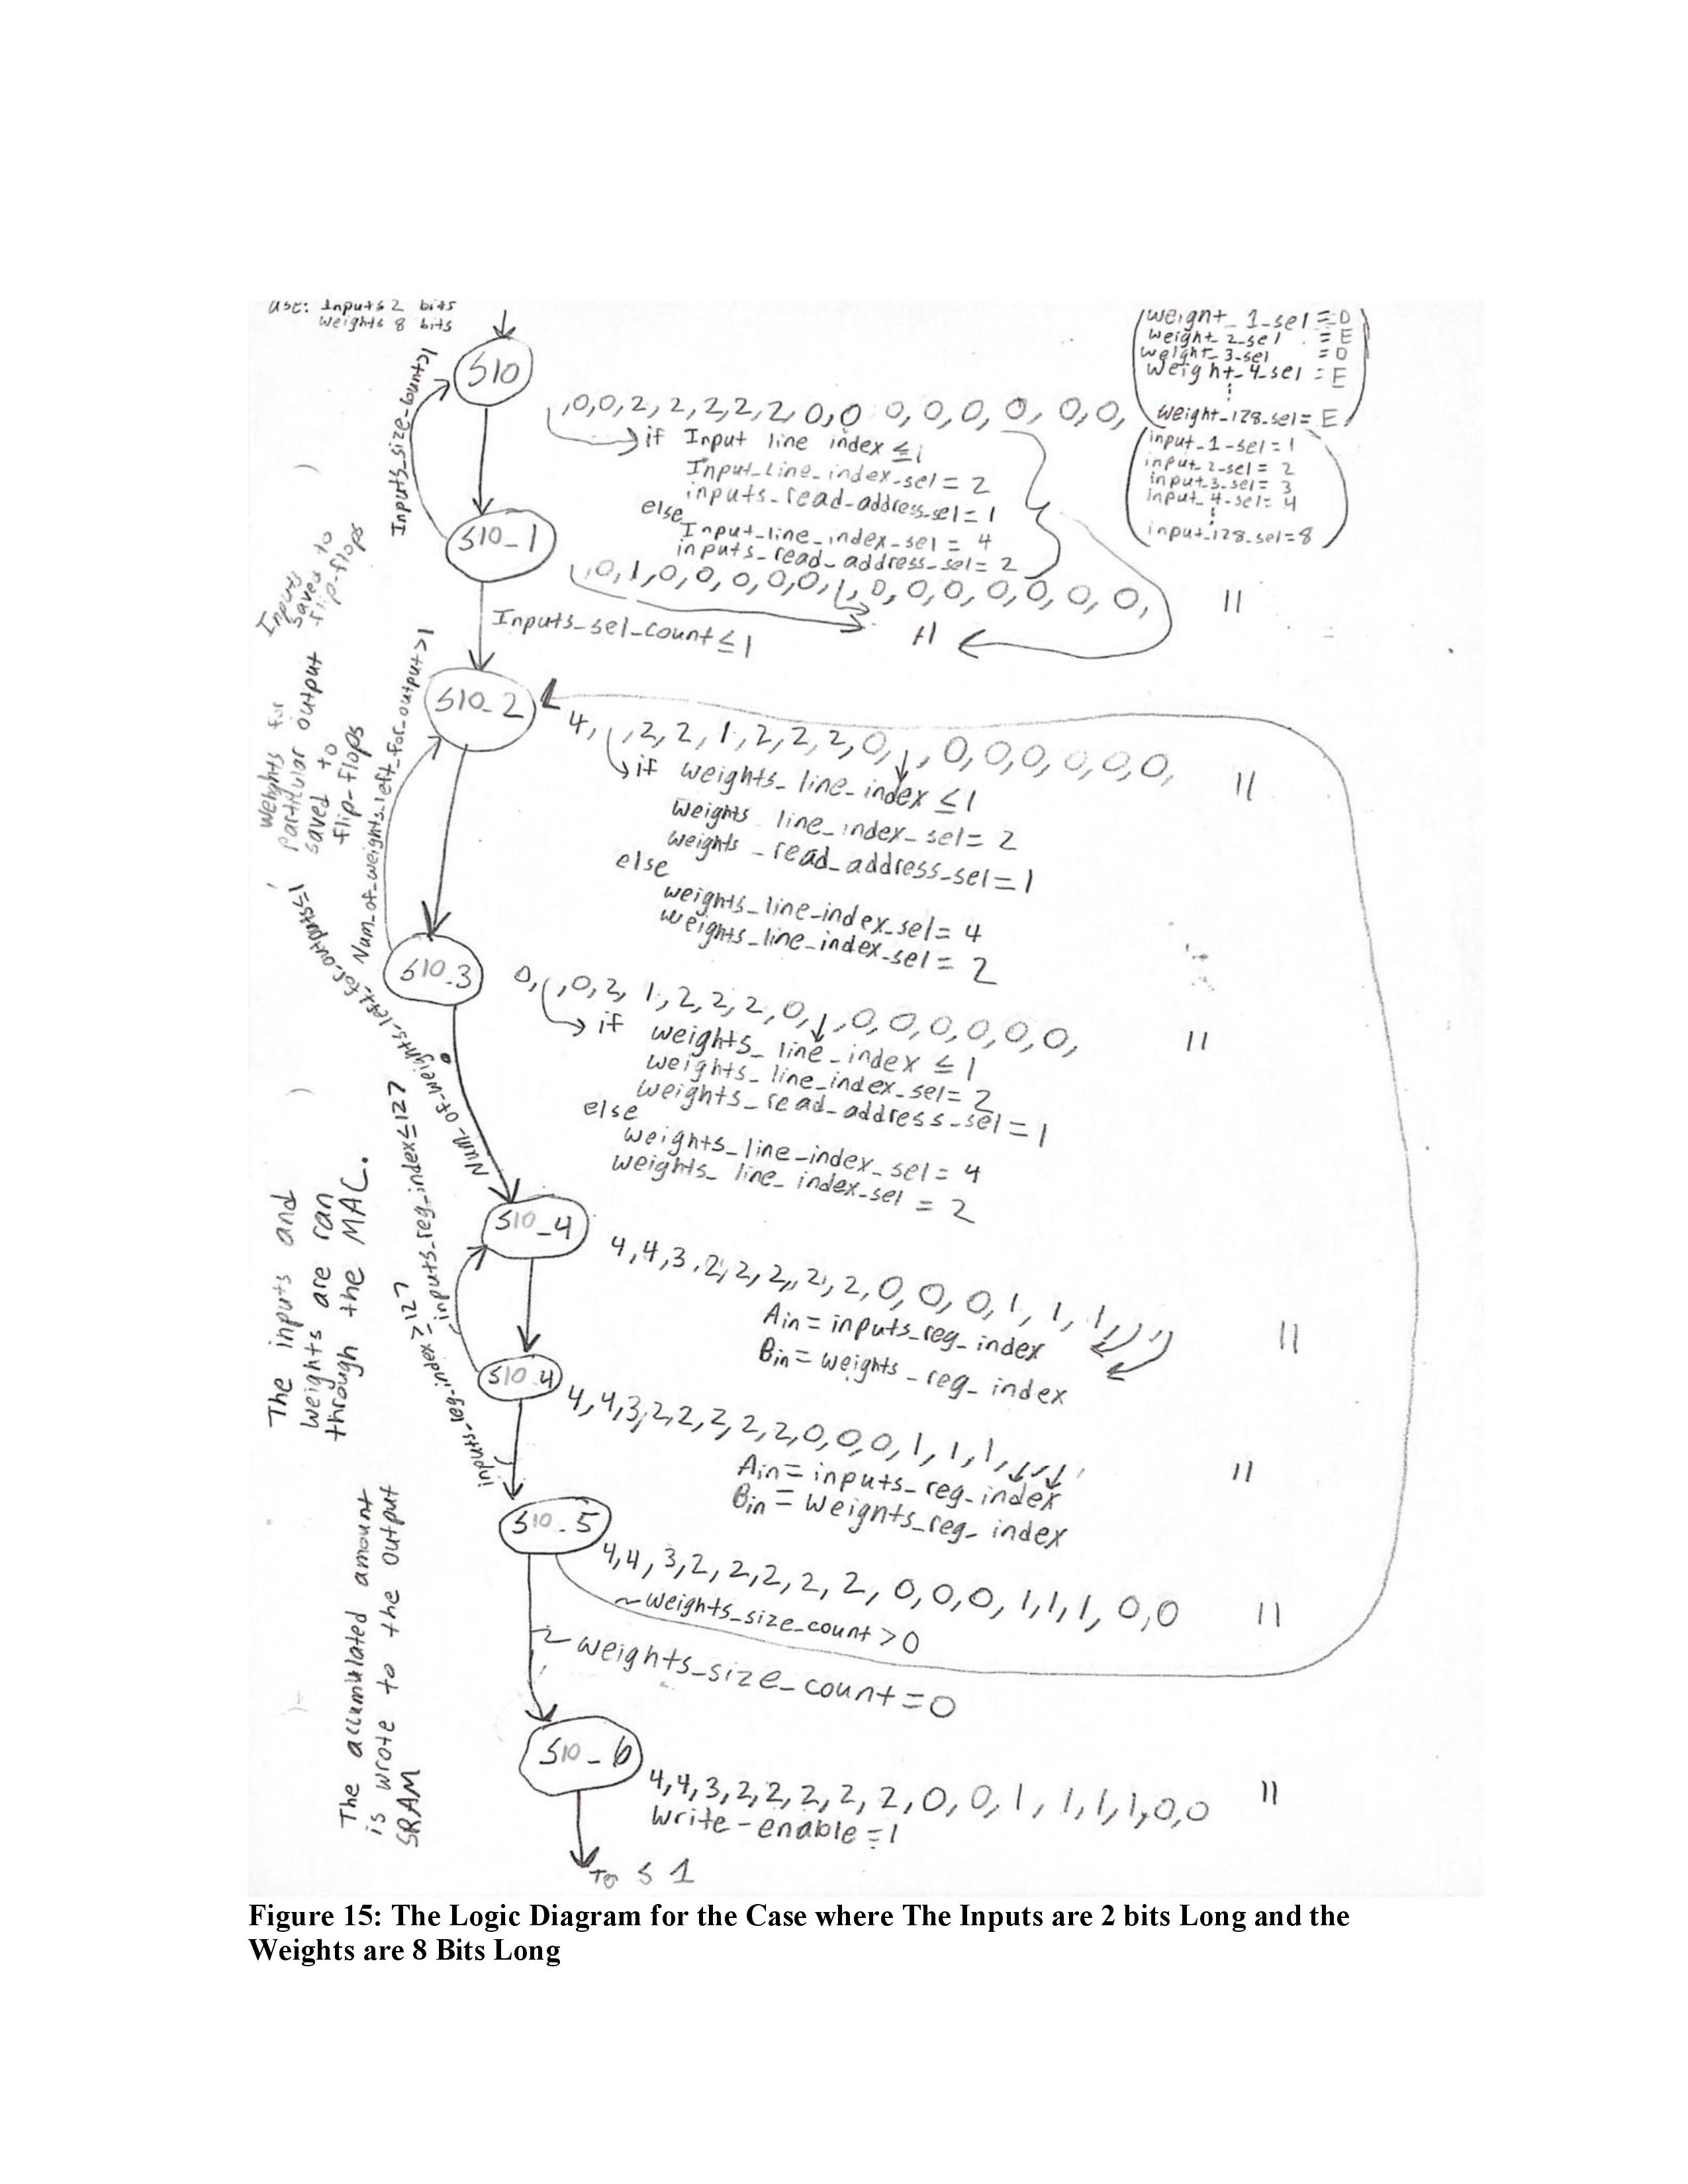 use: Inputs 2 bits
weights 8 bits
S10
Inputs_size_count>1
,0,0,2,2,2,2,2,0,0 0,0,0,0,0,0,
if Input line index ≤1
Input_Line_index_sel = 2
inputs_read_address_sel = 1
else
Input_line_index_sel = 4
inputs_read_address_sel = 2
weight_1_sel = D
weight_2_sel = E
weight_3_sel = D
weight_4_sel = E
weight_128_sel = E
input_1_sel = 1
input_2_sel = 2
input_3_sel = 3
input_4_sel = 4
input_128_sel = 8
S10_1
,0,1,0,0,0,0,0,1,0,0,0,0,0,0,0,
11
+1
Inputs_sel_count ≤ 1
Inputs
saved to
flip-flops
S10_2
4, ,2,2,1,2,2,2,0, ,0,0,0,0,0,0,
11
if weights_line_index ≤ 1
weights line_index_sel = 2
weights_read_address_sel = 1
else
weights_line_index_sel = 4
weights_line_index_sel = 2
weights for
particular output
saved to
flip-flops
Num_of_weights_left_for_output>1
S10_3
0, ,0,2,1,2,2,2,0, ,0,0,0,0,0,0,
11
if weights_line_index ≤ 1
weights_line_index_sel = 2
weights_read_address_sel = 1
else
weights_line_index_sel = 4
weights_line_index_sel = 2
Num_of_weights_left_for_outputs≤1
S10_4
4,4,3,2,2,2,2,2,0,0,0,1,1,1, , ,
11
Ain = inputs_reg_index
Bin = weights_reg_index
inputs_reg_index≤127
The inputs and
weights are ran
through the MAC.
S10_4
4,4,3,2,2,2,2,2,0,0,0,1,1,1, , ,
11
Ain = inputs_reg_index
Bin = weights_reg_index
inputs_reg_index ≥127
S10_5
4,4,3,2,2,2,2,2,0,0,0,1,1,1,0,0
11
~weights_size_count > 0
~weights_size_count = 0
The accumulated amount
is wrote to the output
SRAM
S10_6
4,4,3,2,2,2,2,2,0,0,1,1,1,1,0,0
11
write-enable = 1
To S 1
Figure 15: The Logic Diagram for the Case where The Inputs are 2 bits Long and the
Weights are 8 Bits Long